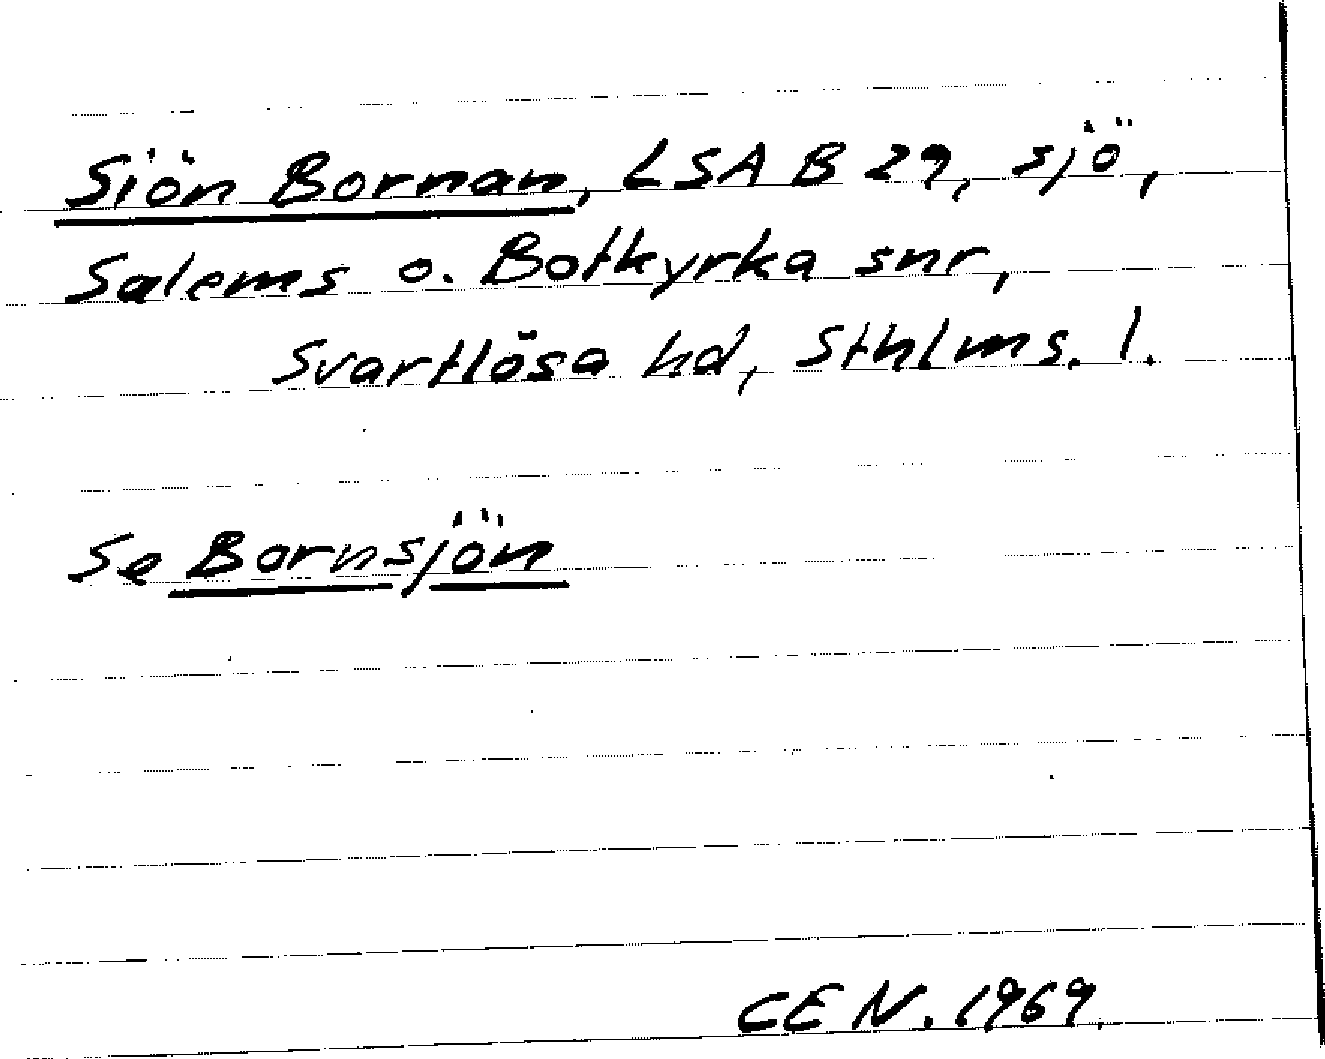 Siön Bornan, LSA B 29, sjö,
Salems o. Botkyrka snr,
Svartlösa hd, Sthlms. l.
Se Bornsjön
CEN. 1969.